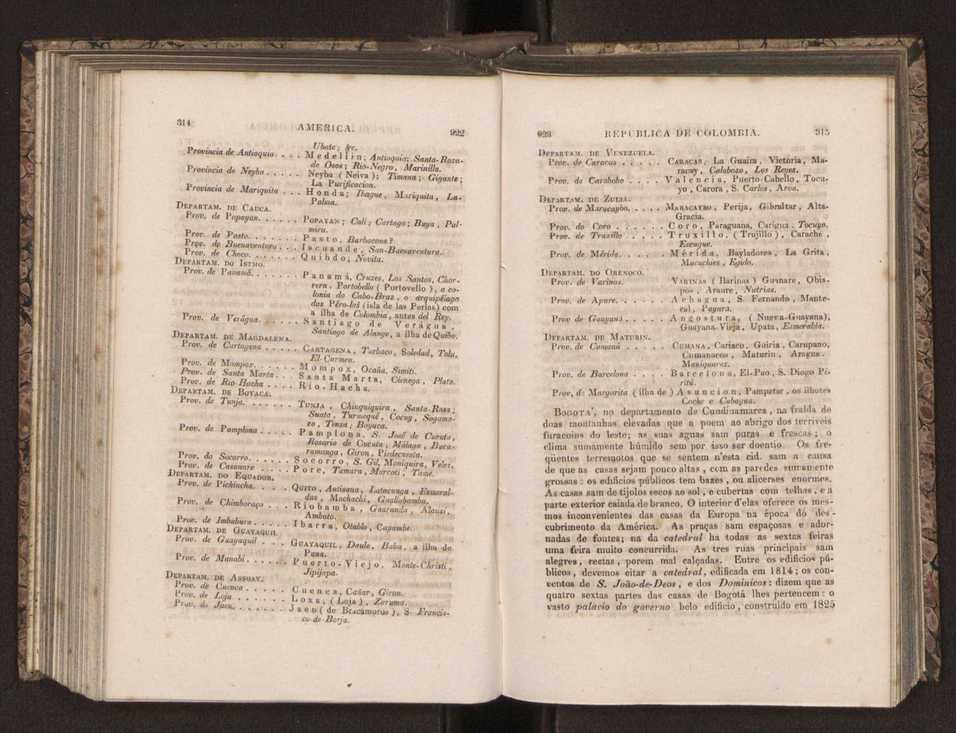 314 AMERICA. 922
Ubate; &c.
Provincia de Antioquia . . . Medellin; Antioquia; Santa-Rosa-
de Osos; Rio-Negro, Marinilla.
Provincia de Neyba . . . . . Neyba (Neiva); Timana; Gigante;
La Purificacion.
Provincia de Mariquita . . . Honda; Ibague, Mariquita, La-
Palma.
DEPARTAM. DE CAUCA.
Prov. de Popayan. . . . . . POPAYAN; Cali; Cartago; Buga, Pal-
mira.
Prov. de Pasto. . . . . . . Pasto, Barbacoas?
Prov. de Buenaventura . . . Iscuande, San-Buenaventura.
Prov. de Choco. . . . . . . Quibdo; Novita.
DEPARTAM. DO ISTMO.
Prov. de Panamá. . . . . . . Panamá, Cruzes, Los Santos, Chor-
rera, Portobello (Portovello), a co-
lonia do Cabo-Braz, o arquipélago
das Péro-las (isla de las Perlas) com
a ilha de Colombia, antes del Rey.
Prov. de Verágua. . . . . . Santiago de Verágua,
Santiago de Alange, a ilha de Quibo.
DEPARTAM. DE MAGDALENA.
Prov. de Cartagena . . . . . CARTAGENA, Turbaco, Soledad, Tolu,
El-Carmen.
Prov. de Mompox. . . . . . Mompox, Ocaña, Simiti.
Prov. de Santa Marta . . . . Santa Marta, Cienega, Plato.
Prov. de Rio Hacha . . . . . Rio-Hacha.
DEPARTAM. DE BOYACA.
Prov. de Tunja. . . . . . . TUNJA, Chinquiquira, Santa-Rosa,
Suata, Turmequé, Cocuy, Sogamo-
zo, Tensa, Boyaca.
Prov. de Pamplona . . . . . Pamplona, S. José de Cucuta,
Rosario de Cucuta, Málaga, Buca-
ramanga, Giron, Piedecuesta.
Prov. do Socorro. . . . . . Socorro, S. Gil, Moniquira, Velez.
Prov. de Casanare . . . . . Pore, Tamara, Marcoti, Tame.
DEPARTAM. DO EQUADOR.
Prov. de Pichincha. . . . . QUITO, Antisana, Latacunga, Esmeral-
das, Machachi, Guallabamba.
Prov. de Chimboraço . . . . Riobamba, Guaranda, Alausi,
Ambato.
Prov. de Imbabura . . . . . Ibarra, Otablo, Cayambe.
DEPARTAM. DE GUAYAQUIL.
Prov. de Guayaquil . . . . GUAYAQUIL, Daule, Baba, a ilha de
Puna.
Prov. de Manabi . . . . . . Puerto-Viejo, Monte-Christi,
Jipijapa.
DEPARTAM. DE ASSUAY.
Prov. de Cuenca . . . . . . Cuenca, Cañar, Giron.
Prov. de Loja . . . . . . . Loxa, (Loja), Zaruma.
Prov. de Jaen. . . . . . . . Jaen (de Bracamoros), S. Francis-
co-de-Borja.
923 REPUBLICA DE COLOMBIA. 315
DEPARTAM. DE VENEZUELA.
Prov. de Caracas . . . . . . CARACAS, La Guaira, Victoria, Ma-
racay, Calabozo, Los Reyes.
Prov. de Carabobo . . . . Valencia, Puerto-Cabello, Toca-
yo, Carora, S. Carlos, Aroa.
DEPARTAM. DE ZULIA.
Prov. de Maracaybo. . . . . MARACAYBO, Perija, Gibraltar, Alta-
Gracia.
Prov. do Coro . . . . . . . Coro, Paraguana, Carigua, Tocuyo.
Prov. de Truxillo . . . . . Truxillo, (Trujillo), Carache,
Escuque.
Prov. de Mérida. . . . . . Mérida, Bayladores, La Grita,
Mucuchies, Egido.
DEPARTAM. DO ORENOCO.
Prov. de Varinas. VARINAS (Barinas) Guanare, Obis-
pos, Araure, Nutrias.
Prov. de Apure. . . . . . . Achagua, S. Fernando, Mante-
cal, Payara.
Prov de Guayana . . . . . Angostura, (Nueva-Guayana),
Guayana-Vieja, Upata, Esmeralda.
DEPARTAM. DE MATURIN.
Prov. de Cumaná . . . . . CUMANA, Cariaco, Guiria, Carupano,
Cumanacoa, Maturin, Aragua.
Maniquarez.
Prov. de Barcelona . . . . Barcelona, El-Pao, S. Diogo Pi-
ritú.
Prov, de Margarita (ilha de) Asuncion, Pampatar, os ilhotes
Coche e Cubagua.
BOGOTA', no departamento de Cundinamarca, na fralda de
duas montanhas elevadas que a poem ao abrigo dos terriveis
furacoins do leste; as suas aguas sam puras e frescas; o
clima sumamente húmido sem por isso ser doentio. Os fre-
qüentes terremotos que se sentem n'esta cid. sam a causa
de que as casas sejam pouco altas, com as paredes sumamente
grossas: os edificios públicos tem bazes, ou alicerses enormes.
As casas sam de tijolos secos ao sol, e cubertas com telhas, e a
parte exterior caiada de branco. O interior d'elas oferece os mes-
mos inconvenientes das casas da Europa na época dó des-
cubrimento da América. As praças sam espaçosas e ador-
nadas de fontes; na da catedral ha todas as sextas feiras
uma feira muito concurrida. As tres ruas principais sam
alegres, rectas, porem mal calçadas. Entre os edificios pú-
blicos, devemos citar a catedral, edificada em 1814; os con-
ventos de S. João-de-Deos, e dos Dominicos: dizem que as
quatro sextas partes das casas de Bogotá lhes pertencem: o
vasto palacio do governo belo edificio, construido em 1825